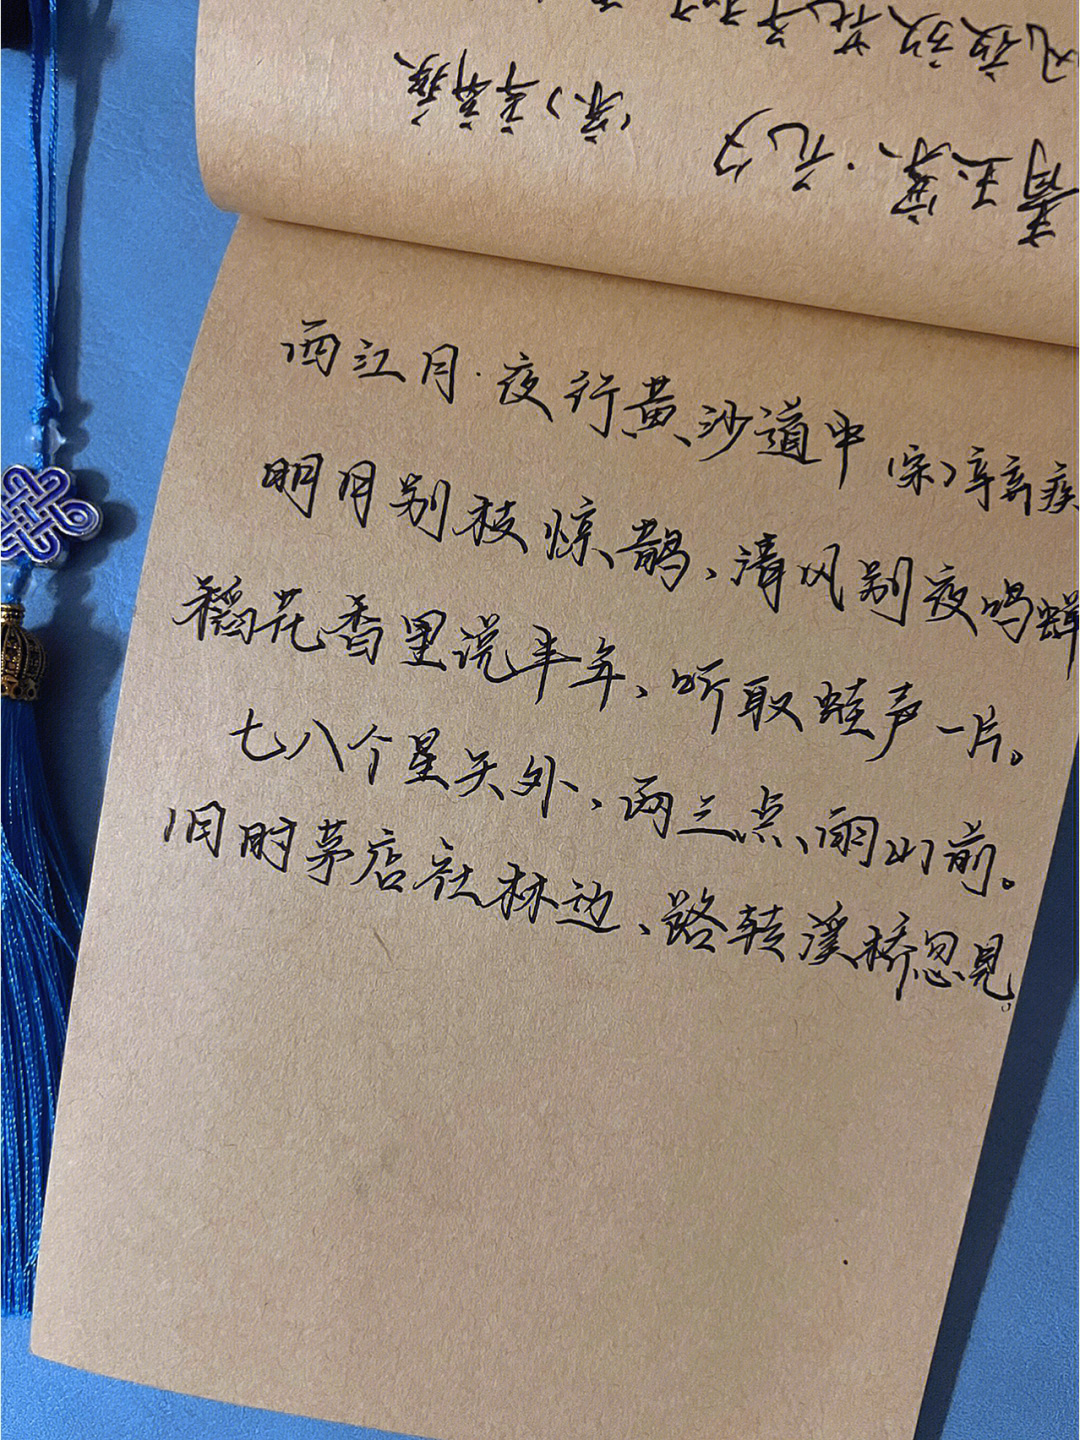 青玉案·元夕 (宋)辛弃疾
风夜放花千
西江月·夜行黄沙道中 (宋)辛弃疾
明月别枝惊鹊、清风别夜鸣蝉
稻花香里说丰年、听取蛙声一片。
七八个星天外、两三点雨山前。
旧时茅店社林边、路转溪桥忽见。